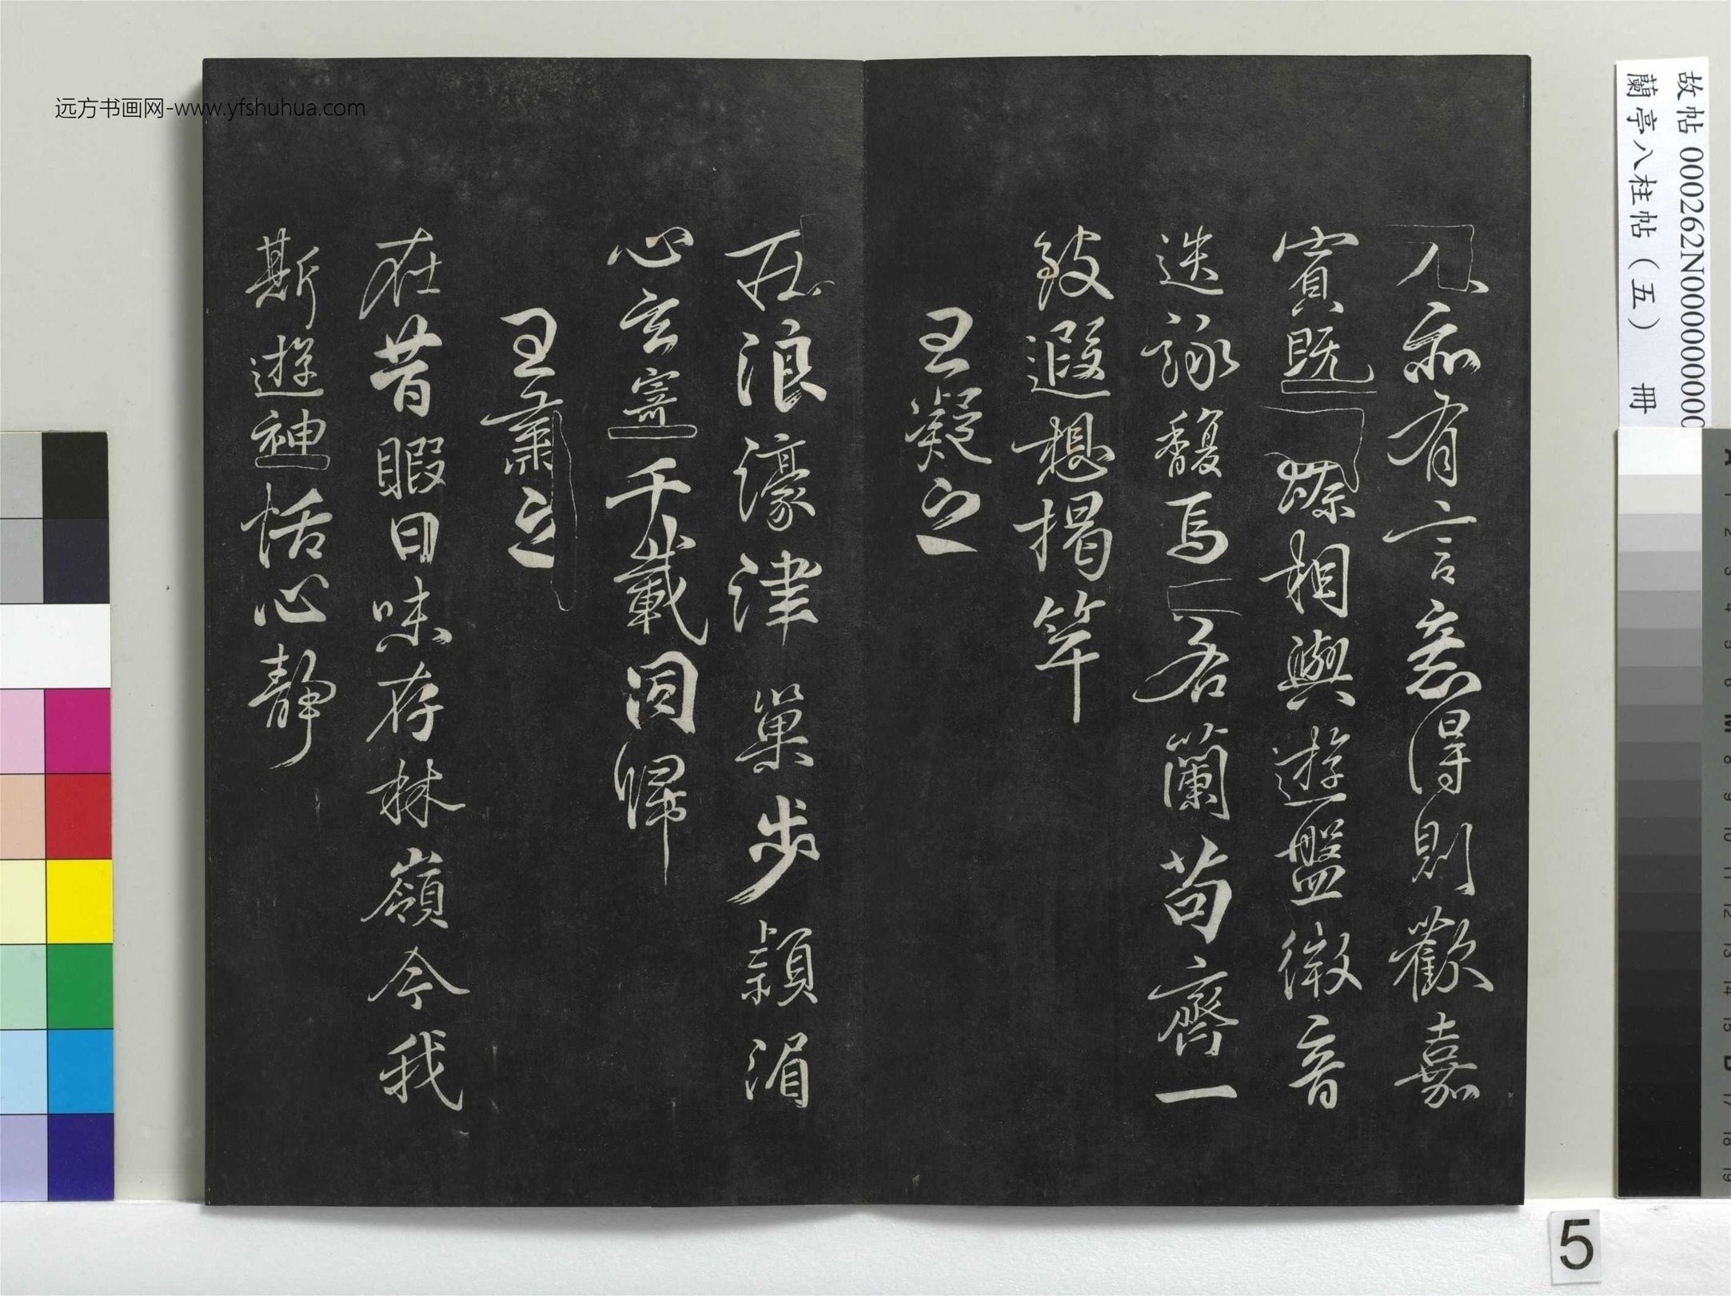 故帖000262N000000000
蘭亭八柱帖（五） 冊
人亦有言意得則歡嘉
賓既臻相與遊盤微音
迭詠馥焉若蘭苟齊一
致遐想揭竿
王凝之
莊浪濠津巢步潁湄
心玄寄千載同歸
王肅之
在昔暇日味存林嶺今我
斯遊神恬心靜
远方书画网-www.yfshuhua.com
5